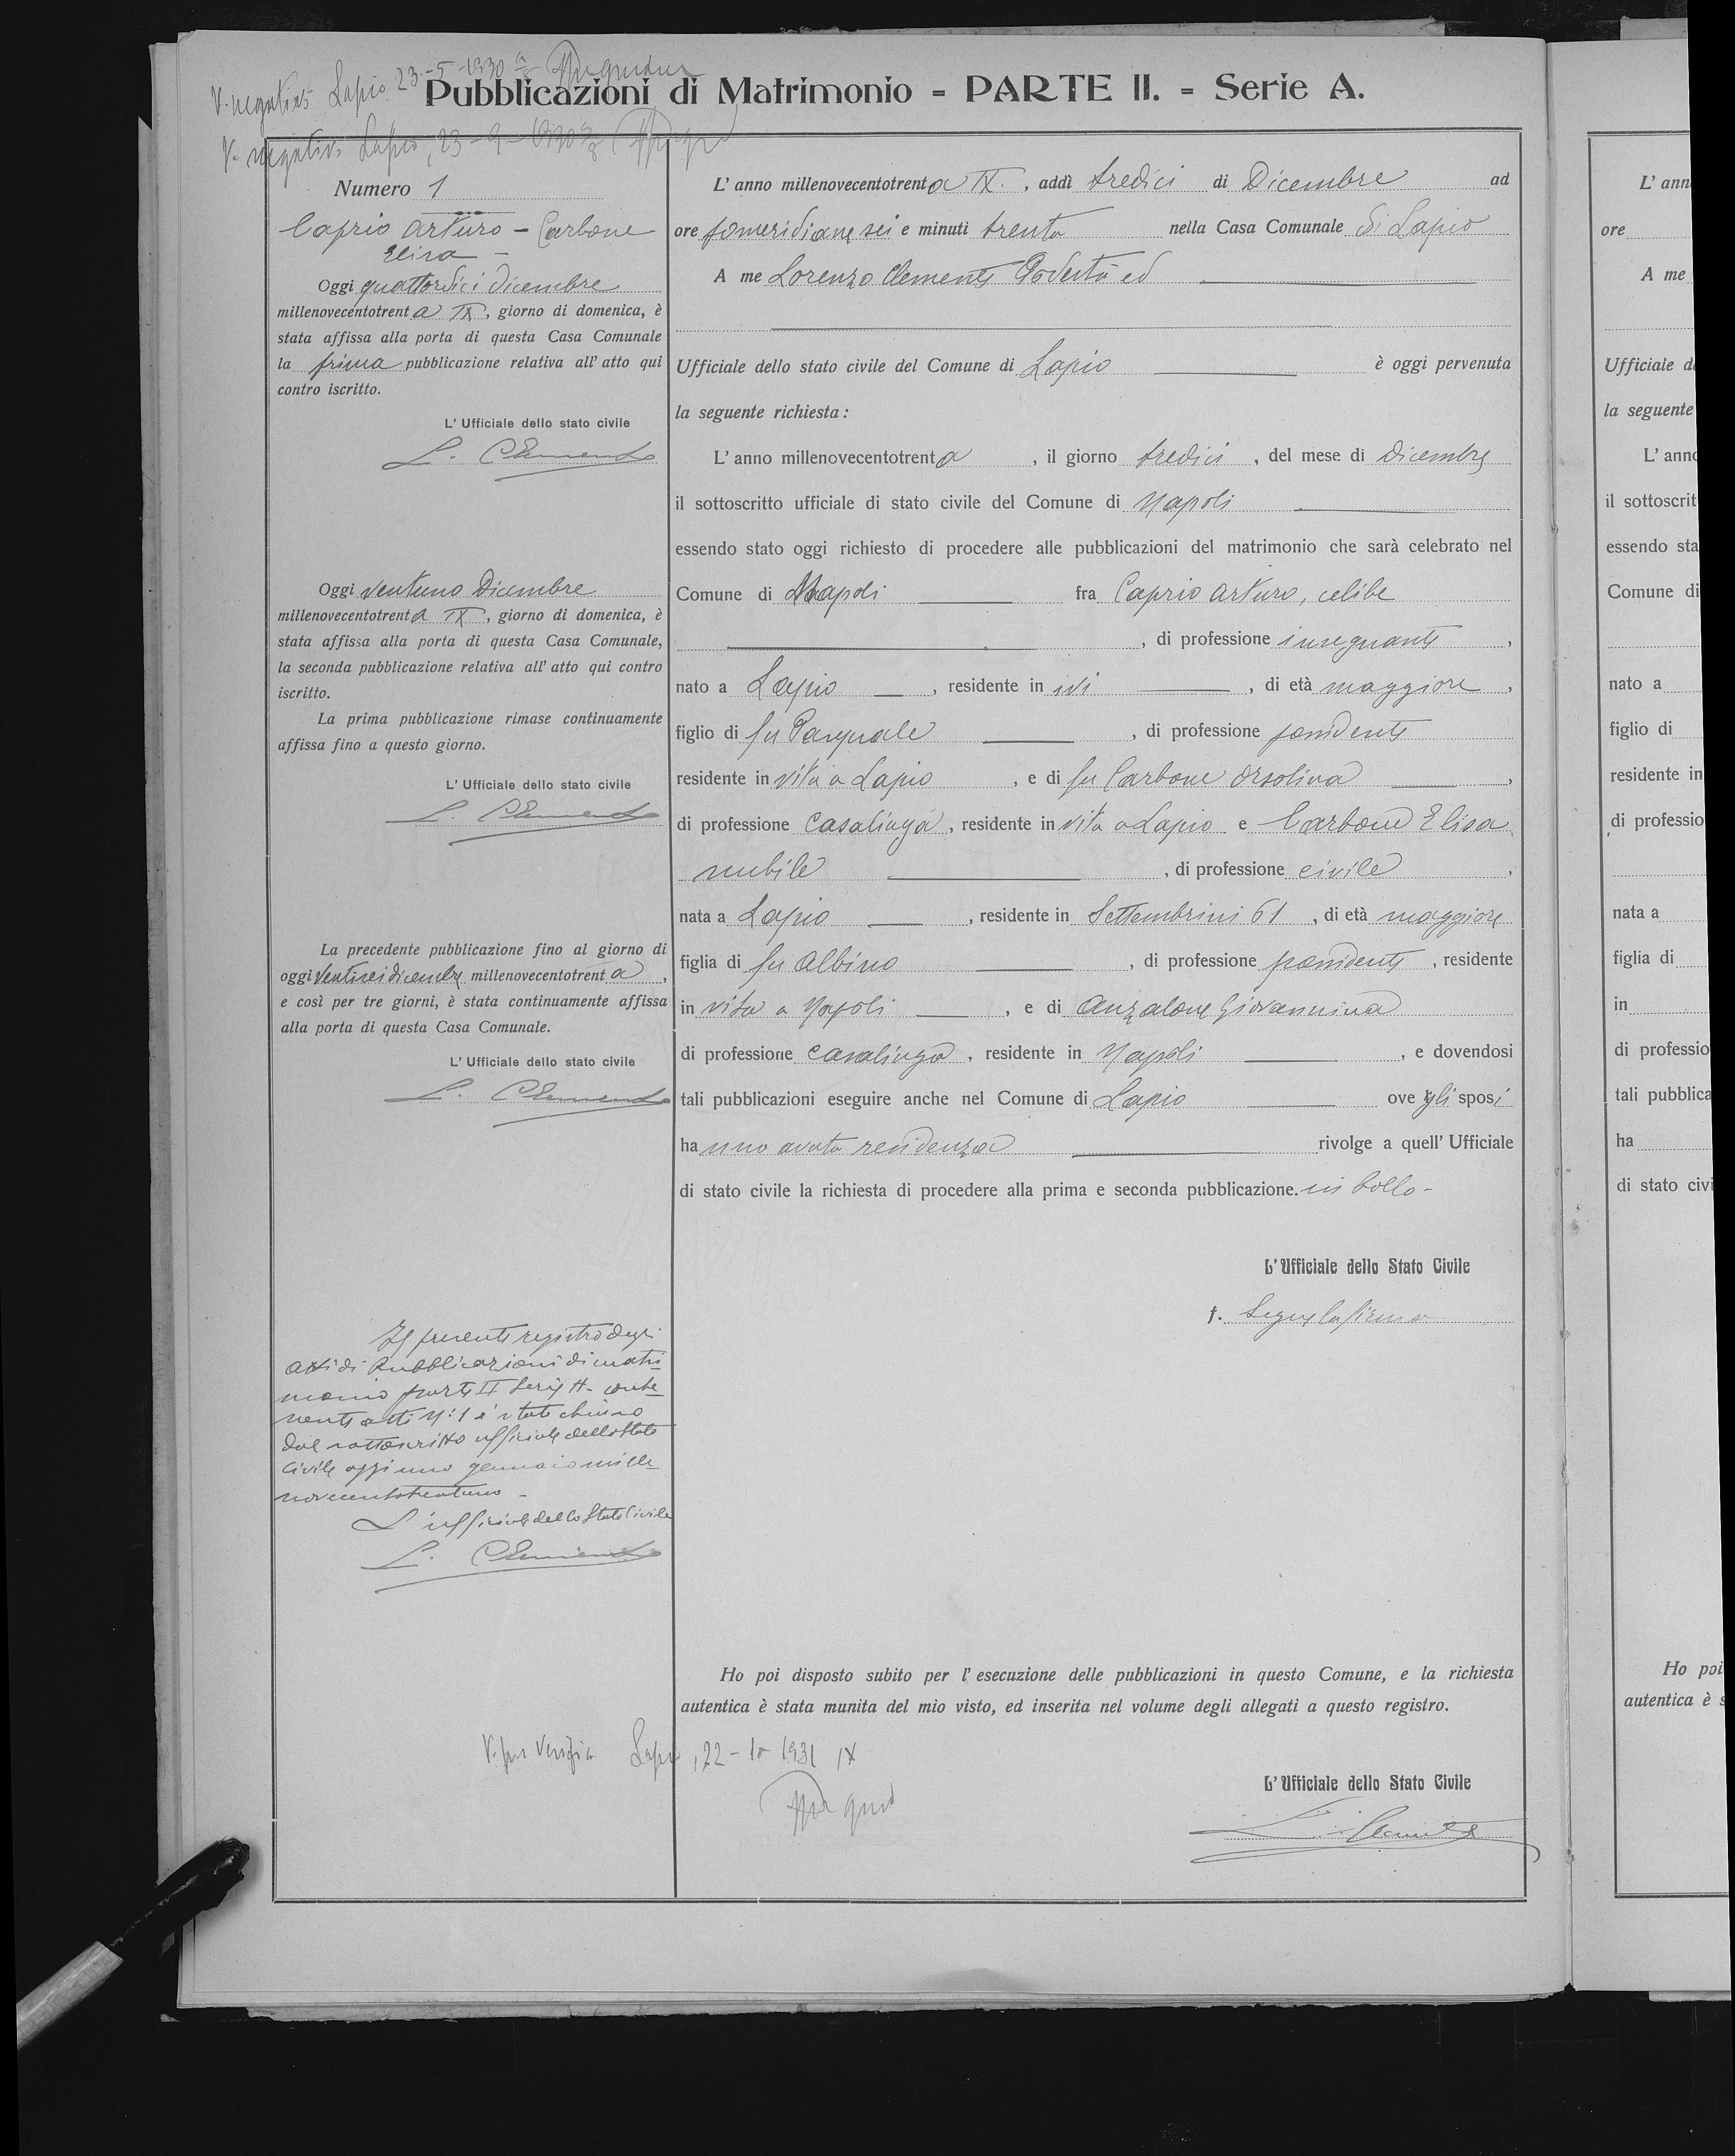 V. negativo Lapio 23-5-1930
Pubblicazioni di Matrimonio - PARTE II. - Serie A.
V. negativo Lapio, 23-9-1930
Numero 1
Caprio Arturo - Carbone
Elisa -
Oggi quattordici Dicembre
millenovecentotrenta IX, giorno di domenica, è
stata affissa alla porta di questa Casa Comunale
la prima pubblicazione relativa all'atto qui
contro iscritto.
L'Ufficiale dello stato civile
L. Clemente
Oggi ventuno Dicembre
millenovecentotrenta IX, giorno di domenica, è
stata affissa alla porta di questa Casa Comunale,
la seconda pubblicazione relativa all'atto qui contro
iscritto.
La prima pubblicazione rimase continuamente
affissa fino a questo giorno.
L'Ufficiale dello stato civile
L. Clemente
La precedente pubblicazione fino al giorno di
oggi ventisei dicembre millenovecentotrenta,
e così per tre giorni, è stata continuamente affissa
alla porta di questa Casa Comunale.
L'Ufficiale dello stato civile
L. Clemente
Il presente registro degli
atti di Pubblicazioni di matri-
monio parte II Serie A- conte-
nente atti N: 1 è stato chiuso
dal sottoscritto ufficiale dello Stato
Civile oggi uno gennaio mille-
novecentotrentuno -
L'ufficiale dello Stato Civile
L. Clemente
L'anno millenovecentotrenta IX., addì tredici di Dicembre ad
ore pomeridiane sei e minuti trenta nella Casa Comunale di Lapio
A me Lorenzo Clemente Podestà ed
Ufficiale dello stato civile del Comune di Lapio è oggi pervenuta
la seguente richiesta:
L'anno millenovecentotrenta, il giorno tredici, del mese di Dicembre
il sottoscritto ufficiale di stato civile del Comune di Napoli
essendo stato oggi richiesto di procedere alle pubblicazioni del matrimonio che sarà celebrato nel
Comune di Napoli fra Caprio Arturo, celibe
, di professione insegnante,
nato a Lapio, residente in ivi, di età maggiore,
figlio di fu Pasquale, di professione possidente
residente in vita a Lapio, e di fu Carbone Orsolina,
di professione casalinga, residente in vita a Lapio e Carbone Elisa
nubile, di professione civile,
nata a Lapio, residente in Settembrini 61, di età maggiore
figlia di fu Albino, di professione possidente, residente
in vita a Napoli, e di Anzalone Giovannina
di professione casalinga, residente in Napoli, e dovendosi
tali pubblicazioni eseguire anche nel Comune di Lapio ove gli sposi
hanno avuta residenza rivolge a quell'Ufficiale
di stato civile la richiesta di procedere alla prima e seconda pubblicazione. in bollo -
L'Ufficiale dello Stato Civile
f. Segue la firma
Ho poi disposto subito per l'esecuzione delle pubblicazioni in questo Comune, e la richiesta
autentica è stata munita del mio visto, ed inserita nel volume degli allegati a questo registro.
V. per verifica Lapio, 22-10-1931 IX
L'Ufficiale dello Stato Civile
L. Clemente
L'ann
ore
A me
Ufficiale d
la seguente
L'anno
il sottoscrit
essendo sta
Comune di
nato a
figlio di
residente in
di professio
nata a
figlia di
in
di professio
tali pubblica
ha
di stato civi
Ho poi
autentica è s